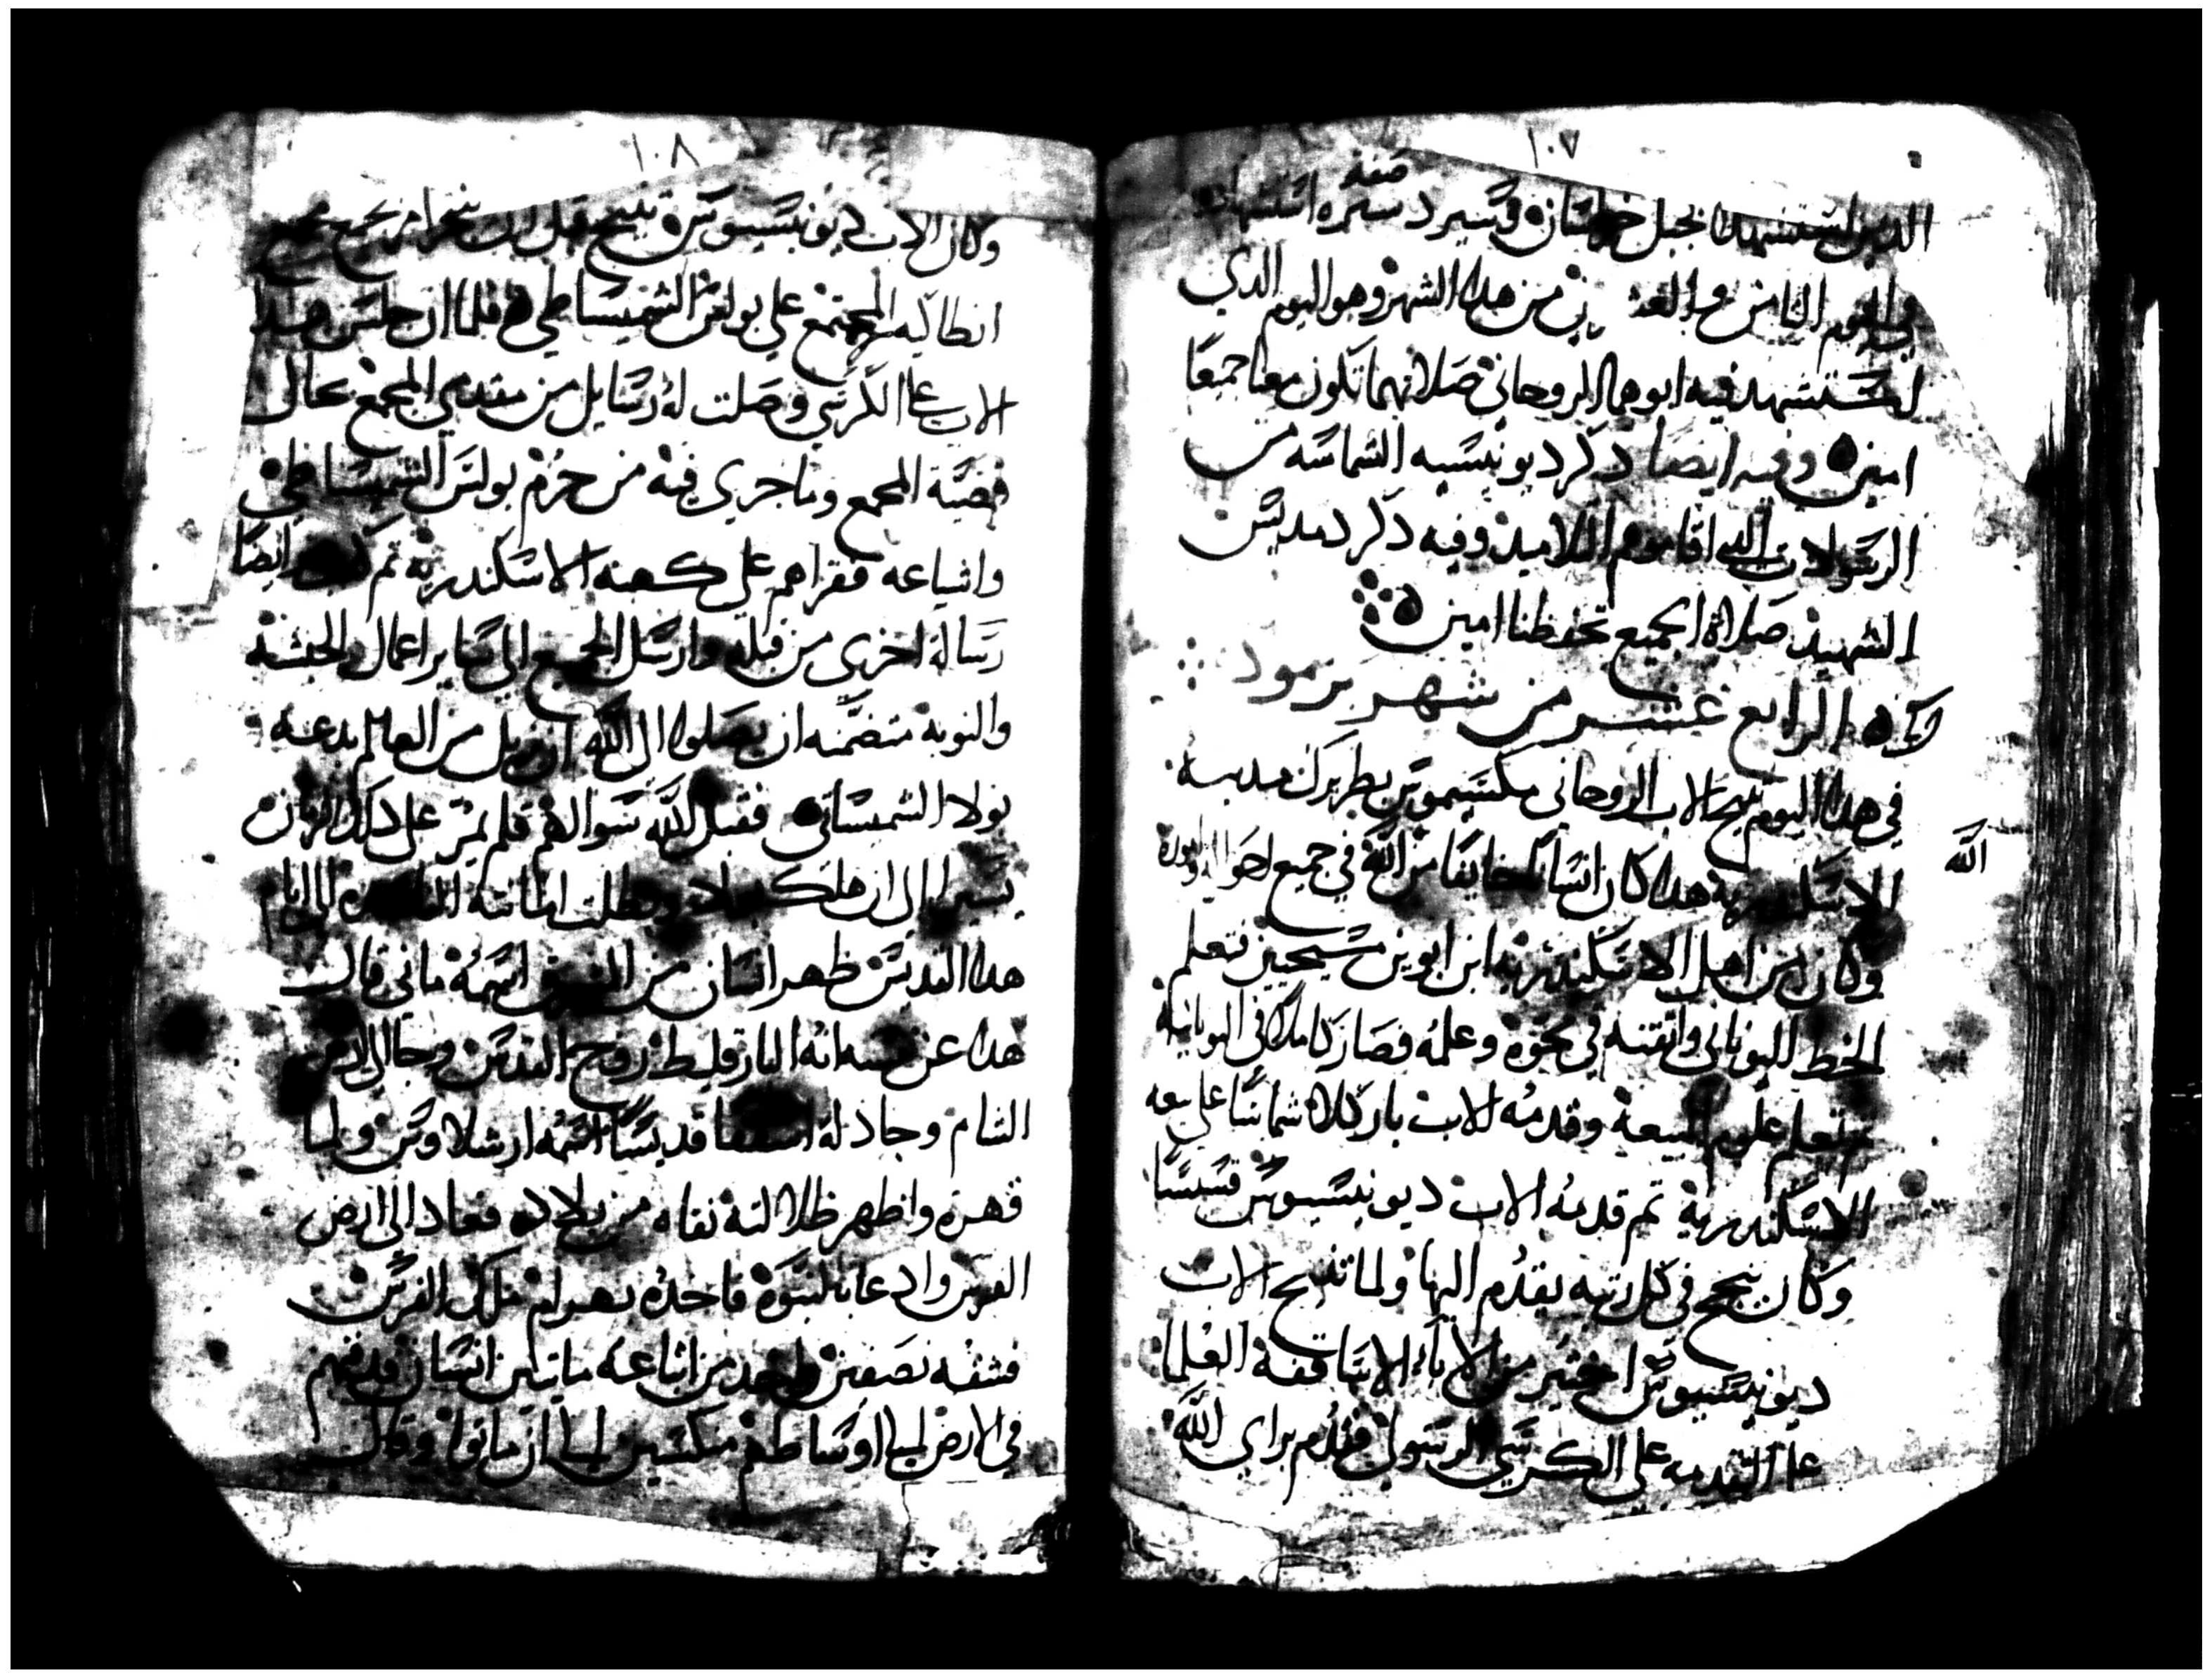 ١٠٧
الدين استشهدا بجبل خراسان وسيرد سيره استشهاده
صفه
في اليوم الثامن والعشرين من هدا الشهر وهو اليوم الدي
استشهد فيه ابوهما الروحاني صلاتهما تكون معنا جميعا
امين وفيه ايضا دكر ديونيسيه الشماسه من
الرسولات التي اقاموهم التلاميد وفيه دكر دمديس
الشهيد صلاة الجميع تحفظنا امين
الرابع عشر من شهر برموده
في هدا اليوم تنيح الاب الروحاني مكسيموس بطريرك مدينه
الاسكندرية هدا كان انسانا خايفا من الله في جميع احواله
الله
وكان من اهل الاسكندرية ابن ابوين مسيحيين فتعلم
الخط اليوناني واتقنه في نحوه وعلمه فصار كاملا في اليونانية
تم تعلم علوم البيعة وقدمه الاب ياركلا شماسا على بيعه
الاسكندرية تم قدمه الاب ديونيسيوس قسيسا
وكان ينجح في كل رتبه يقدم اليها ولما تنيح الاب
ديونيسيوس اختير من الاباء الاساقفة العلما
على التقدمه على الكرسي الرسولي فقدم براي الله
١٠٨
وكان الاب ديونيسيوس تنيح قبل ان ينحرامر مجمع
انطاكيه المجتمع على بولس الشميساطي فلما ان جلس هدا
الاب على الكرسي وصلت له رسايل من مقدمي المجمع بحال
قضية المجمع وما جري فيه من حرم بولس الشمساطي
واشياعه فقراهم على كهنه الاسكندرية تم كتب ايضا
رسالة اخري من قبله وارسل الجميع الي ساير اعمال والحبشه
والنوبة متضمنه ان يصلوا الى الله ان يزيل من العالم بدعة
بولا الشمساتي فقبل الله سوالهم فلم يمر على دلك الزمان
يسيرا الي ان هلك بولا وبطلت امانته وفي ايام
هدا القديس ظهر انسان من الشرق اسمه ماني قال
هدا عن نفسه انه البارقليط روح القدس وجا الي ارض
الشام وجادله اسقفا قديسا اسمه ارشلاوس ولما
قهره واظهر ظلالته نفاه من بلاده فعاد الى ارض
الفرس وادعا بالنبوة فاخده بهرام ملك الفرس
فشقه نصفين واخد من اتباعه مايتين انسان فدفنهم
في الارض الي اوساطهم منكسين الي ان ماتوا وقال